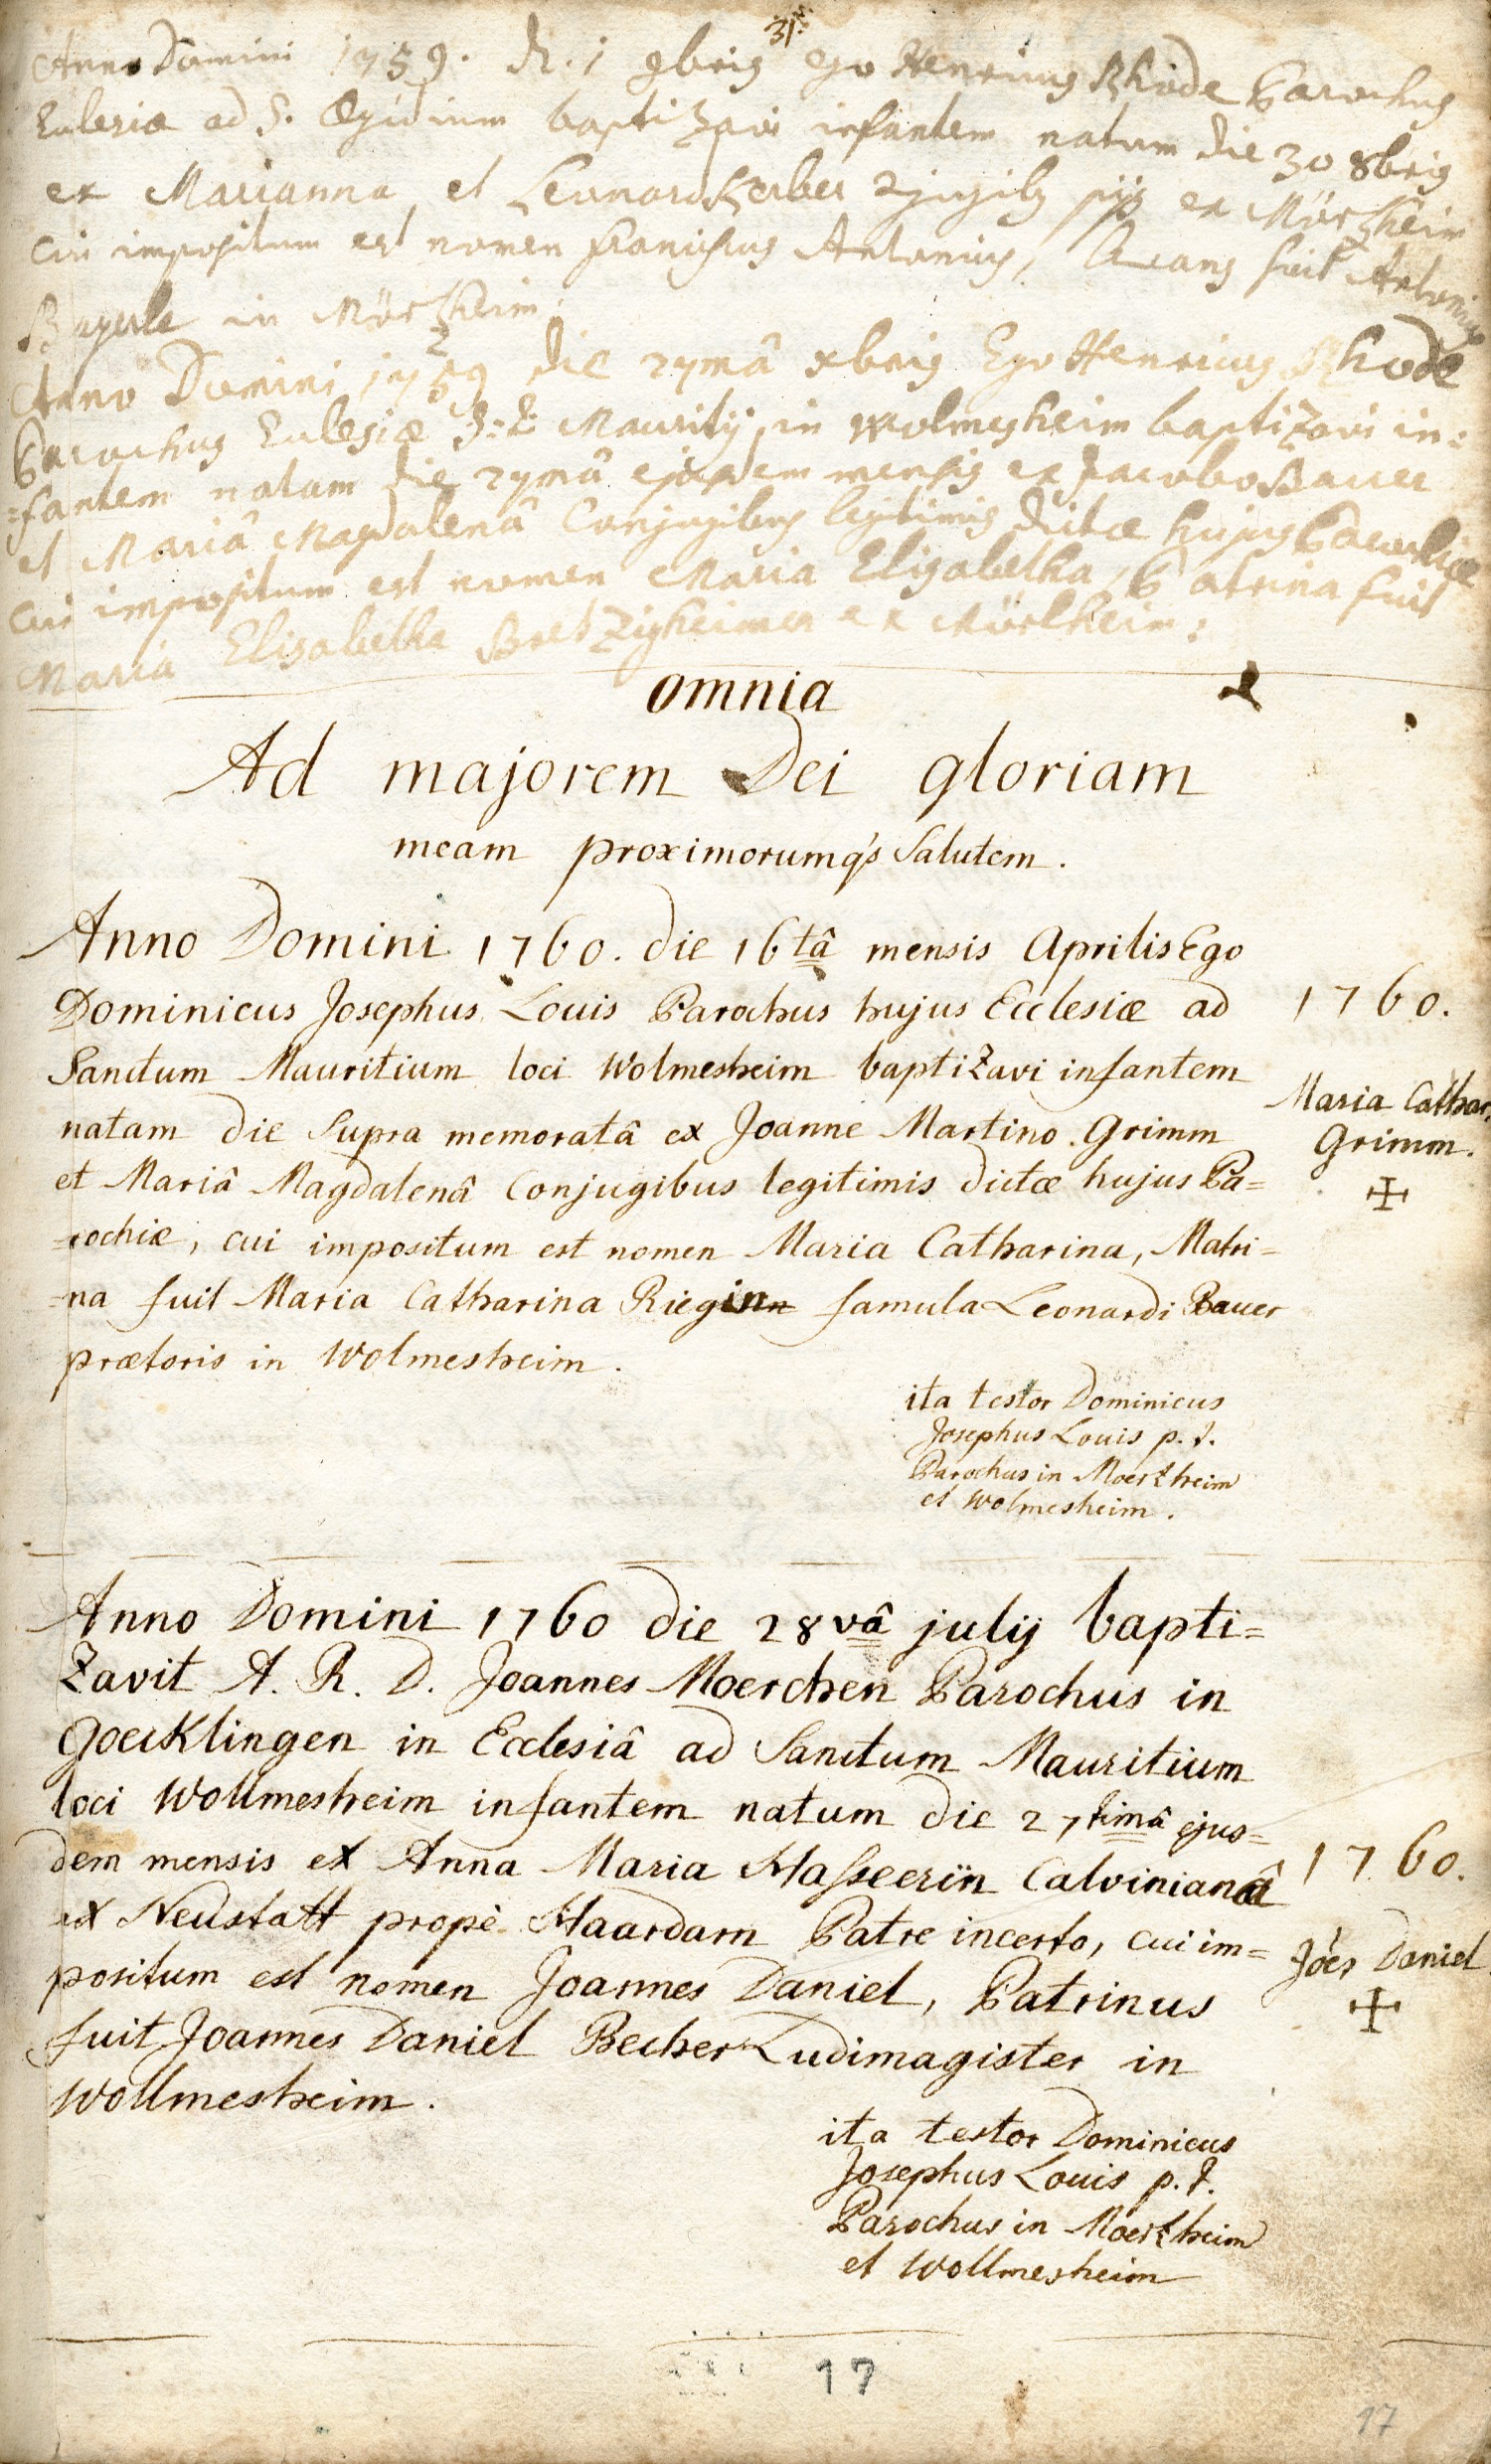 31.
Anno Domini 1759. d. 1 9bris ego Henricus Rhode Parochus
Eclesiæ ad S. Ægidium baptizavi infantem natum die 30 8bris
ex Marianna et Leonard Kerber ex Mörzheim
cui impositum est nomen Antonius, Levans fuit Antonius
Bayerle in Mörzheim.
Anno Domini 1759 die 27mâ xbris Ego Henricus Rhode
Parochus Eclesiæ Mauritij in Wolmesheim baptizavi in=
=fantem natam die 27mâ ejusdem mensis ex Jacobo Bauer
et Mariâ Magdalenâ Conjugibus legitimis dictæ hujus Parochiæ
cui impositum est nomen Maria Elisabetha, Patrina fuit
Maria Elisabetha ex Mörlheim:
omnia
Ad majorem Dei gloriam
meam proximorumq's Salutem.
Anno Domini 1760. die 16tâ mensis Aprilis Ego
Dominicus Josephus Louis Parochus hujus Ecclesiæ ad
Sanctum Mauritium loci Wolmesheim baptizavi infantem
natam die Supra memoratâ ex Joanne Martino Grimm
et Mariâ Magdalenâ Conjugibus legitimis dictæ hujus Pa=
=rochiæ, cui impositum est nomen Maria Catharina, Matri=
=na fuit Maria Catharina Rieginn famula Leonardi Bauer
prætoris in Wolmesheim.
1760.
Maria Cathar.
Grimm.
ita testor Dominicus
Josephus Louis p. t.
Parochus in Moerzheim
et Wolmesheim.
Anno Domini 1760 die 28vâ julij bapti=
Zavit A. R. D. Joannes Moerchen Parochus in
Goecklingen in Ecclesiâ ad Sanctum Mauritium
loci Wollmesheim infantem natum die 27timâ ejus=
dem mensis ex Anna Maria Hasseerin Calvinianâ
ex Neustatt propè Haardam Patre incerto, cui im=
positum est nomen Joannes Daniel, Patrinus
fuit Joannes Daniel Becher Ludimagister in
Wollmesheim.
1760.
Joês Daniel
ita testor Dominicus
Josephus Louis p. t.
Parochus in Moerzheim
et Wollmesheim
17
17